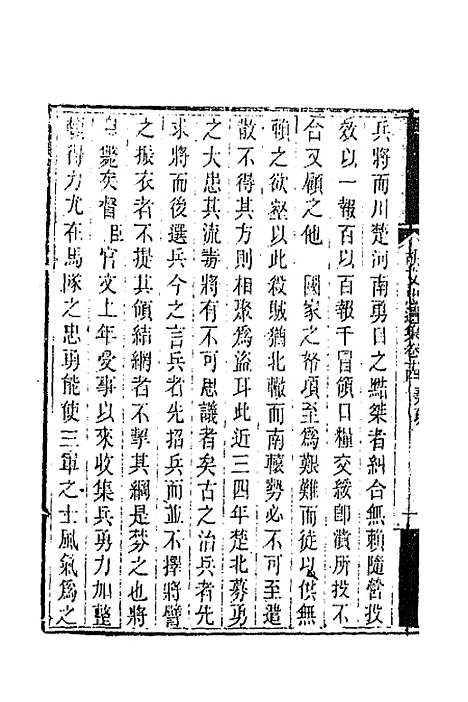 兵將而川楚河南勇目之黠桀者糾合無賴隨營投
效以一報百以百報千冒領口糧交綏卽潰所投不
合又顧之他　國家之帑項至爲艱難而徒以供無
賴之欲壑以此殺賊猶北轍而南轅勢必不可至遣
散不得其方則相聚爲盜耳此近三四年楚北募勇
之大患其流毒將有不可思議者矣古之治兵者先
求將而後選兵今之言兵者先招兵而並不擇將譬
之振衣者不提其領結網者不挈其綱是棼之也將
自斃矣督臣官文上年受事以來收集兵勇力加整
頓得力尤在馬隊之忠勇能使三軍之士風氣爲之
遺集卷十四 奏疏